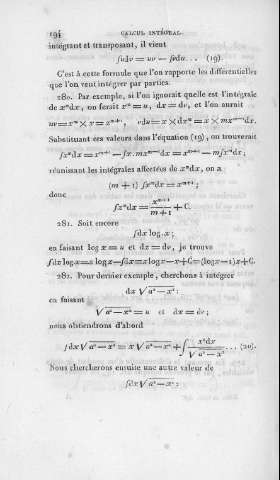 194 CALCUL INTÉGRAL.
intégrant et transposant, il vient
∫udv = uv — ∫vdu... (19).
C'est à cette formule que l'on rapporte les différentielles
que l'on veut intégrer par parties.
280. Par exemple, si l'on ignorait quelle est l'intégrale
de xᵐdx, on ferait xᵐ = u, dx = dv, et l'on aurait
uv = xᵐ × x = xᵐ⁺¹, vdu = x × dxᵐ = x × mxᵐ⁻¹dx.
Substituant ces valeurs dans l'équation (19), on trouverait
∫xᵐdx = xᵐ⁺¹ — ∫x.mxᵐ⁻¹dx = xᵐ⁺¹ — m∫xᵐdx;
réunissant les intégrales affectées de xᵐdx, on a
(m + 1) ∫xᵐdx = xᵐ⁺¹;
donc
∫xᵐdx = xᵐ⁺¹/(m + 1) + C.
281. Soit encore
∫dx log.x;
en faisant log x = u et dx = dv, je trouve
∫dx log x = x log x — ∫dx = x log x — x + C = (log x — 1)x + C.
282. Pour dernier exemple, cherchons à intégrer
dx √(a² — x²);
en faisant
√(a² — x²) = u et dx = dv;
nous obtiendrons d'abord
∫dx √(a² — x²) = x √(a² — x²) + ∫ x²dx/√(a² — x²) ... (20).
Nous chercherons ensuite une autre valeur de
∫dx √(a² — x²);